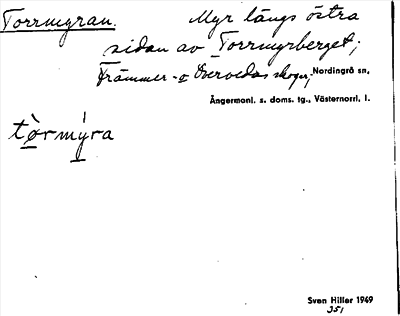 Torrmyran. Myr längs östra
sidan av Torrmyrberget;
Främmer- o Övervedas skogar; Nordingrå sn,
Ångermanl. s. doms. tg., Västernorrl. l.
tòrmýra
Sven Hiller 1949
351